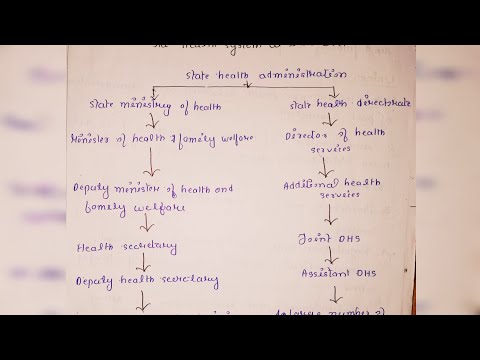 health system
State health administration
State ministry of health
State health directorate
Minister of health & family welfare
Director of health
services
Deputy minister of health and
family welfare
Additional health
services
Health secretary
Joint DHS
Deputy health secretary
Assistant DHS
number of